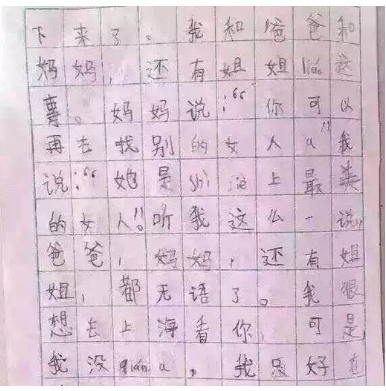 下来了。我和爸爸和
妈妈，还有姐姐liáo这
事。妈妈说：“你可以
再去找别的女人a”我
说：“她是shì jiè上最美
的女人！”听我这么一说，
爸爸，妈妈，还有姐
姐，都无语了。我很
想去上海看你，可是
我没qián a，我只好在